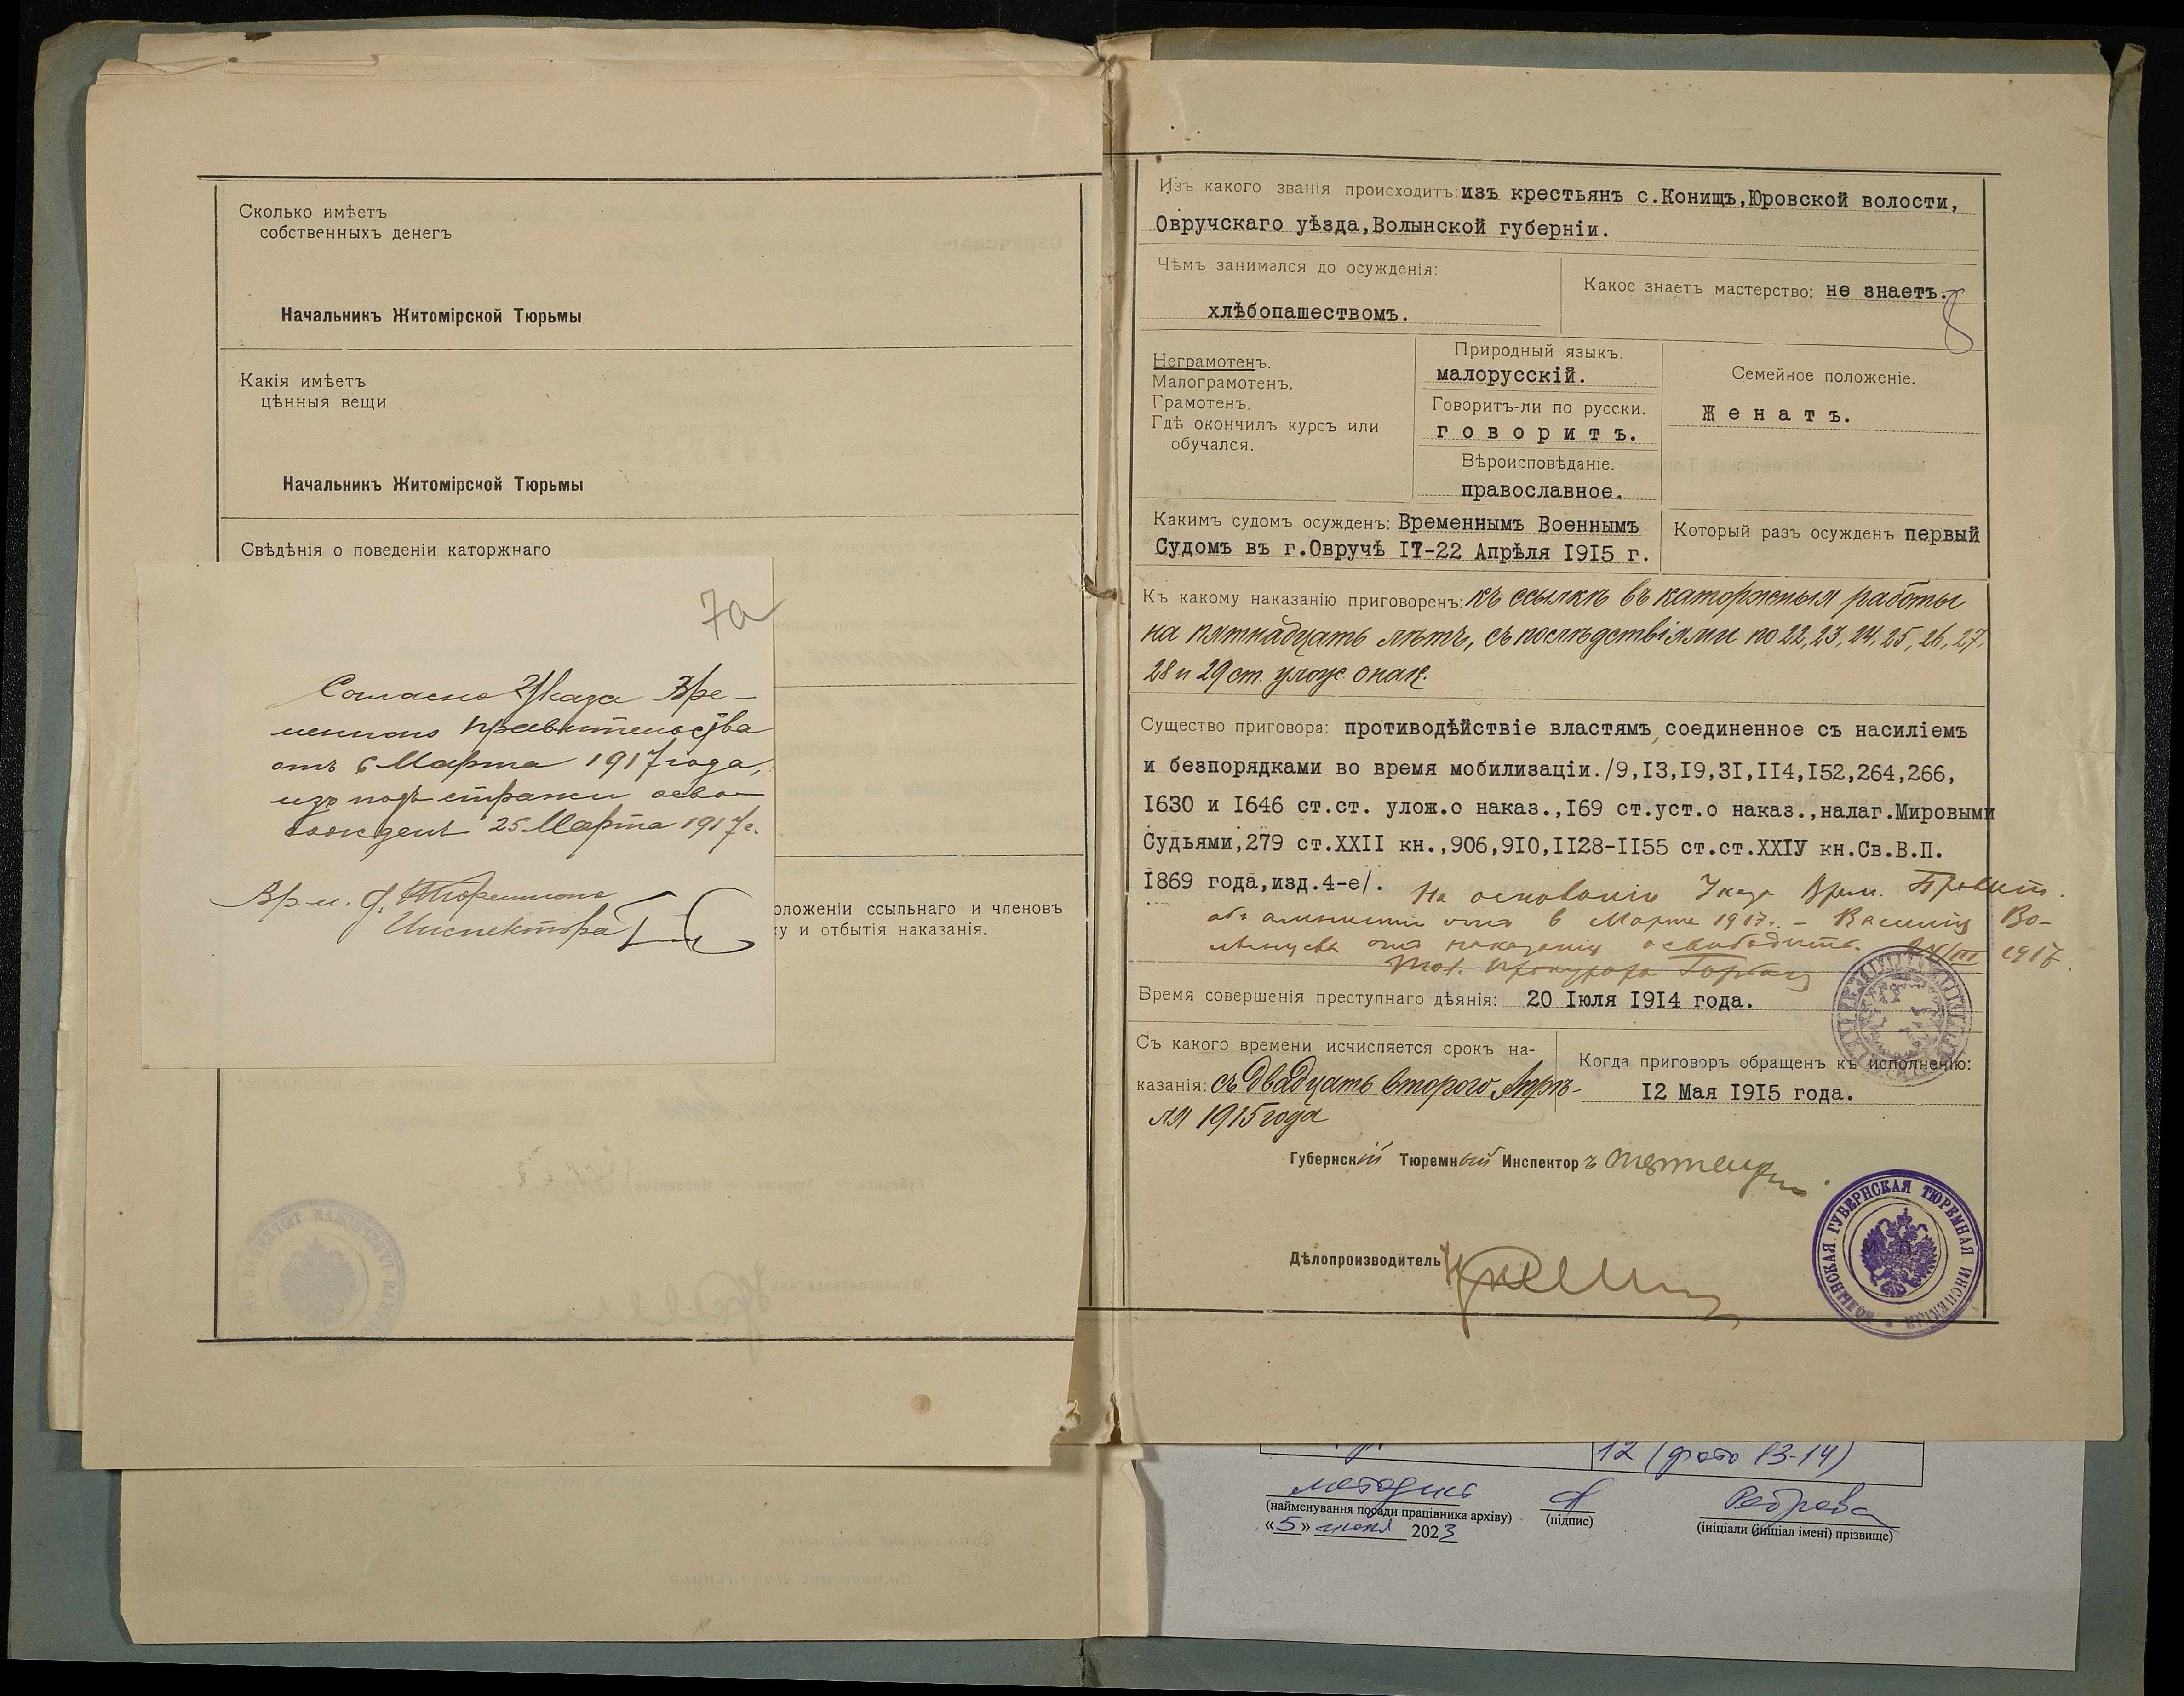 Сколько имѣетъ
собственныхъ денегъ
Начальникъ Житомірской Тюрьмы
Какія имѣетъ
цѣнныя вещи
Начальникъ Житомірской Тюрьмы
Свѣдѣнія о поведеніи каторжнаго
7а
Согласно Указа Вре-
меннаго Правительства
отъ 6 Марта 1917 года,
изъ подъ стражи осво-
божденъ 25 Марта 1917 г.
Вр. и. д. Тюремнаго
Инспектора
оложеніи ссыльнаго и членовъ
ку и отбытія наказанія.
Изъ какого званія происходитъ: изъ крестьянъ с.Конищъ,Юровской волости,
Овручскаго уѣзда,Волынской губерніи.
Чѣмъ занимался до осужденія:
хлѣбопашествомъ.
Какое знаетъ мастерство: не знаетъ.
8
Неграмотенъ.
Малограмотенъ.
Грамотенъ.
Гдѣ окончилъ курсъ или
обучался.
Природный языкъ.
малорусскій.
Говоритъ-ли по русски.
говоритъ.
Вѣроисповѣданіе.
православное.
Семейное положеніе.
Женатъ.
Какимъ судомъ осужденъ: Временнымъ Военнымъ
Судомъ въ г.Овручѣ 17-22 Апрѣля 1915 г.
Который разъ осужденъ первый
Къ какому наказанію приговоренъ: къ ссылкѣ въ каторжныя работы
на пятнадцать лѣтъ, съ послѣдствіями по 22, 23, 24, 25, 26, 27,
28 и 29 ст. улож. о нак.
Существо приговора: противодѣйствіе властямъ, соединенное съ насиліемъ
и безпорядками во время мобилизаціи./9,13,19,31,114,152,264,266,
1630 и 1646 ст.ст. улож.о наказ.,169 ст.уст.о наказ.,налаг.Мировыми
Судьями,279 ст.XXII кн.,906,910,1128-1155 ст.ст.XXIV кн.Св.В.П.
1869 года,изд.4-е/.
На основаніи Указа Врем. Правит.
объ амнистіи отъ 6 Марта 1917 г. - Василія Во-
отъ наказанія освободить. 1917
Тов. Прокурора
Время совершенія преступнаго дѣянія: 20 Іюля 1914 года.
Съ какого времени исчисляется срокъ на-
казанія: съ двадцать второго Апрѣ-
ля 1915 года
Когда приговоръ обращенъ къ исполненію:
12 Мая 1915 года.
Губернскій Тюремный Инспекторъ
Дѣлопроизводитель
ВОЛЫНСКАЯ ГУБЕРНСКАЯ ТЮРЕМНАЯ ИНСПЕКЦІЯ
12 (фото 13-14)
методист
(найменування посади працівника архіву)
(підпис)
(ініціали (ініціал імені) прізвище)
«5» 2023